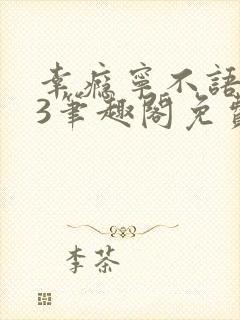 幸瘾宁不語
3筆趣閣免費
李茶